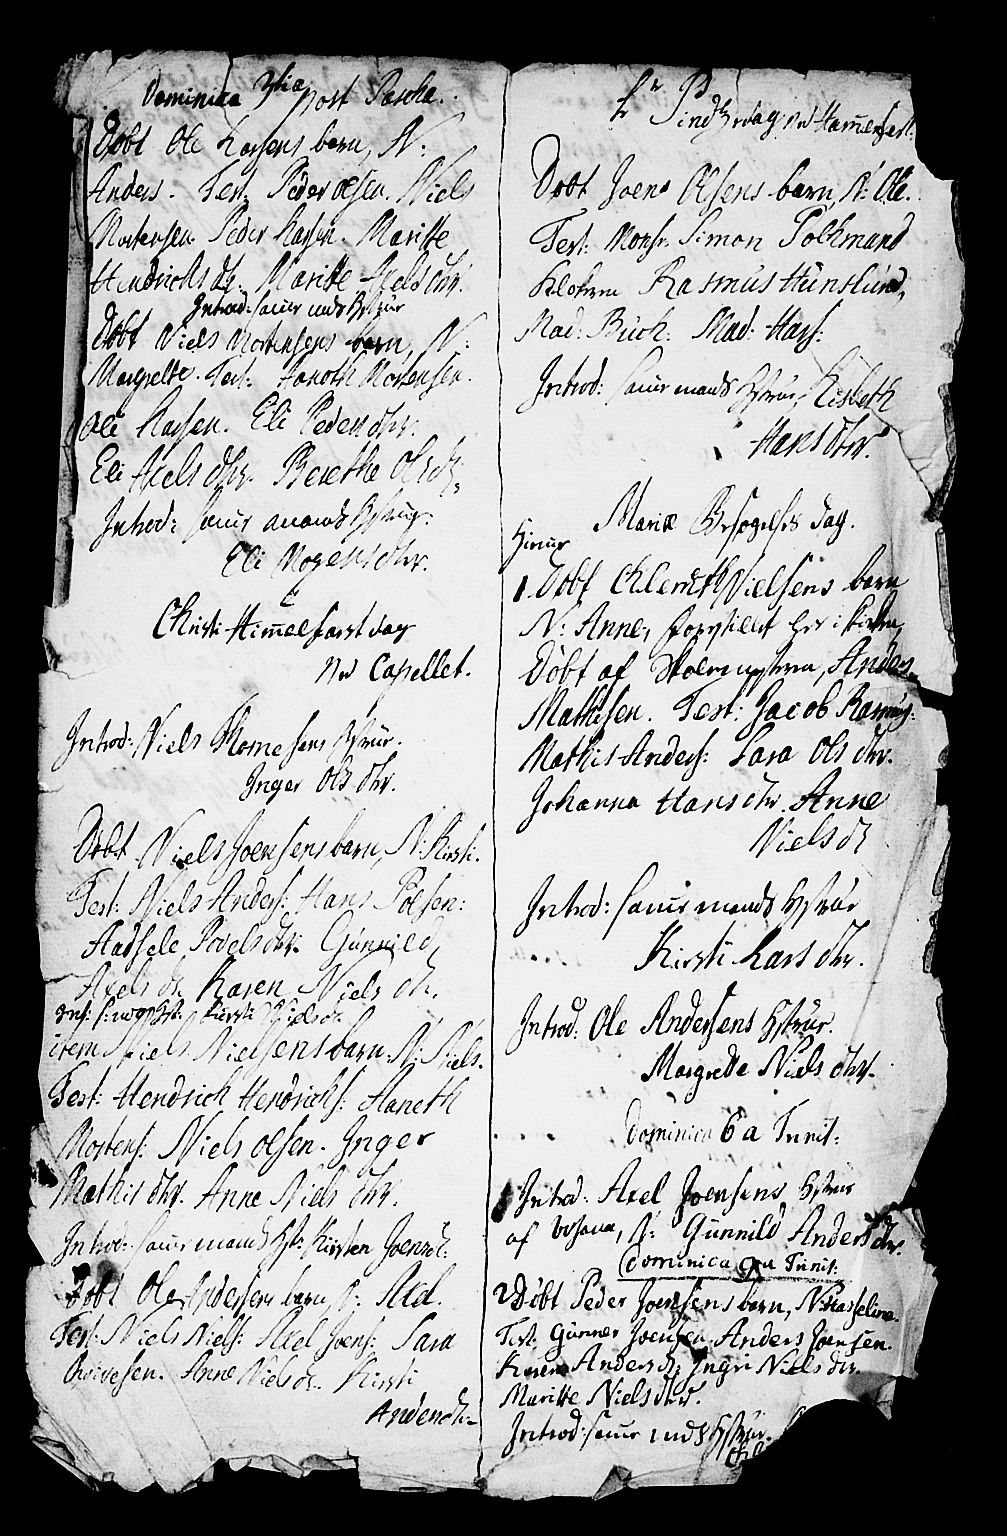 Dominica 3tia post Pascha.
Døbt Ole Larsens barn, N:
Anders. Test: Peder Olsen. Niels
Mortensen Peder Larsen. Maritte
Hendrichsdtr. Maritte Axelsdhr.
Introd: samme mands Hystrur
Døbt Niels Mortensens barn, N:
Margrethe. Test: Haneth Mortensen.
Ole Larsen. Eli Pedersdhr.
Eli Axelsdhr. Berethe Olsdr.
Introd: samme mands Hystrur:
Eli Mogensdhr.
Christi Himmelfarst dag
ved Capellet.
Introd: Niels Thomesens Hystrur.
Inger Olsdhr.
Døbt Niels Joensens barn, N: Kirsti.
Test: Niels Anders: Hans Polsen:
Povelsdhr. Gunnild
Axelsdr. Karen Nielsdhr.
Kirsti Nielsdr
item Niels Nielsens barn. N: Niels.
Test: Hendrich Hendrichs: Haneth
Mortens: Niels Olsen. Inger
Mathisdhr. Anne Nielsdhr.
Introd: samme mands Hystr: Kirsten Joensdr:
Døbt Ole Andersens barn N: Axel.
Test: Niels Niels: Axel Joens: Sara
Anne Nielsdr. Kirsti
Andersdtr
2den Pindtzedag ved Hammerfest.
Døbt Joen Olsens barn, N: Ole.
Test: Monsr. Simon Polkmand
Klokeren Rasmus Hunslund,
Mad: Buch: Mad: Hass:
Introd: samme mands Hystrue, Lisbeth
Hansdhr.
Mariæ Besøgelses dag.
1 Døbt Clemeth Nielsens barn
N: Anne, her i kirken,
Døbt af Skolemesteren, Anders
Mathisen. Test: Jacob Rasmus:
Mathis Anders: Sara Olsdhr.
Johanna Hansdhr. Anne
Nielsdr
Introd: samme mands Hystrur
Kirsti Larsdhr.
Introd: Ole Andersens Hystrur.
Margrette Nielsdhr.
Dominica 6 a Trinit:
Introd: Axel Joensens Hystrur
af N: Gunnild Andersdhr.
Dominica 9 a Trinit:
Døbt Peder Joensens barn, N:
Test: Gunner Joensen. Anders Joensen.
Karen Andersdr: Ingri Nielsdtr.
Maritte Nielsdhr.
Introd: samme mands Hystrur.